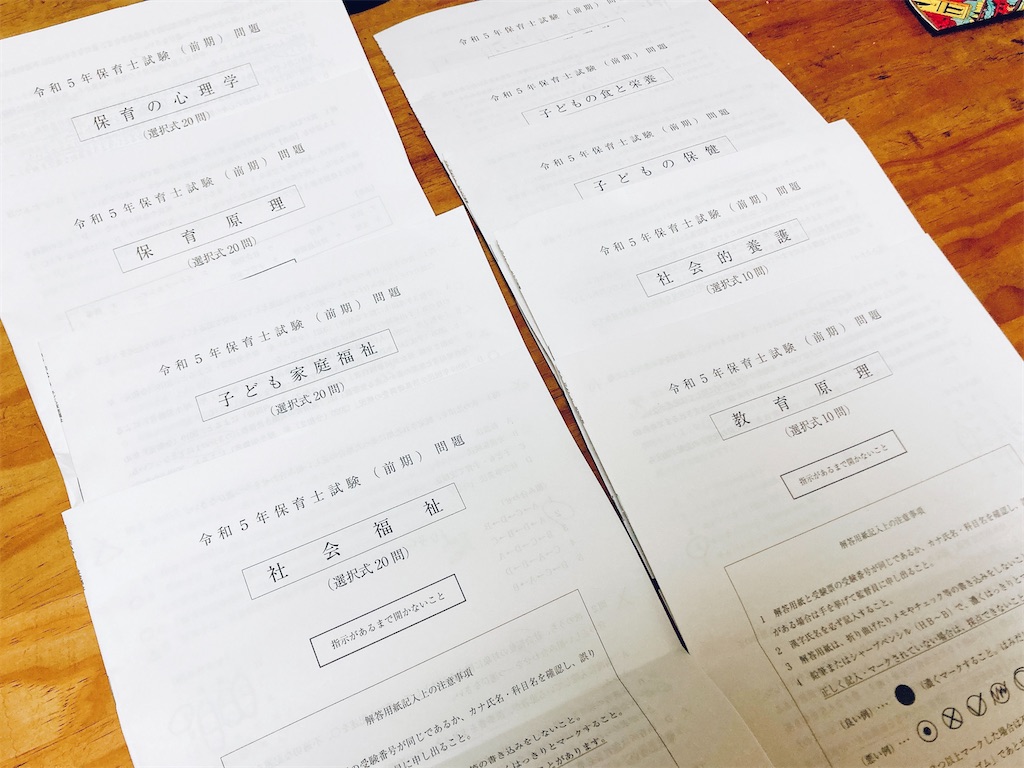 令和5年保育士試験(前期)問題
保育の心理学
(選択式20問)
令和5年保育士試験(前期)問題
保育原理
(選択式20問)
令和5年保育士試験(前期)問題
子ども家庭福祉
(選択式20問)
令和5年保育士試験(前期)問題
社会福祉
(選択式20問)
指示があるまで開かないこと
解答用紙記入上の注意事項
の受験番号が同じであるか、カナ氏名・科目名を確認し、誤り
に申し出ること。
の書き込みをしないこと。
はっきりとマークすること。
ことがあります。
令和5年保育士試験(前期)問題
令和5年保育士試験(前期)問題
子どもの食と栄養
令和5年保育士試験(前期)問題
子どもの保健
令和5年保育士試験(前期)問題
社会的養護
(選択式10問)
令和5年保育士試験(前期)問題
教育原理
(選択式10問)
指示があるまで開かないこと
解答用紙記入上の注意事項
1 解答用紙と受験票の受験番号が同じであるか、カナ氏名・科目名を確認し、
がある場合は手を挙げて監督員に申し出ること。
2 漢字氏名を必ず記入すること。
3 解答用紙は、折り曲げたりメモやチェック等の書き込みをしないこ
4 鉛筆またはシャープペンシル(HB~B)で、濃くはっきりと
正しく記入・マークされていない場合は、採点できないこと
(良い例)…
(濃くマークすること。はみ
(悪い例)…
つ以上マークした場合は